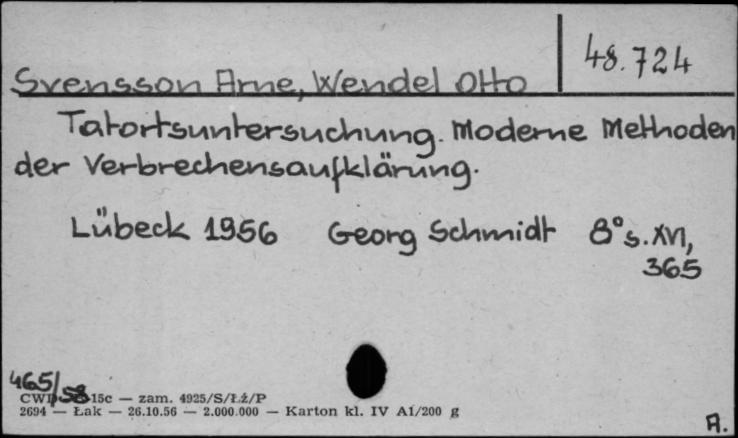 48.724
Svensson Arne, Wendel Otto
Tatortsuntersuchung. Moderne Methoden
der Verbrechensaufklärung.
Lübeck 1956 Georg Schmidt 8° s. XVI,
365
465/58
15c — zam. 4925/S/Łż/P
2694 — Łak — 26.10.56 — 2.000.000 — Karton kl. IV A1/200 g
A.